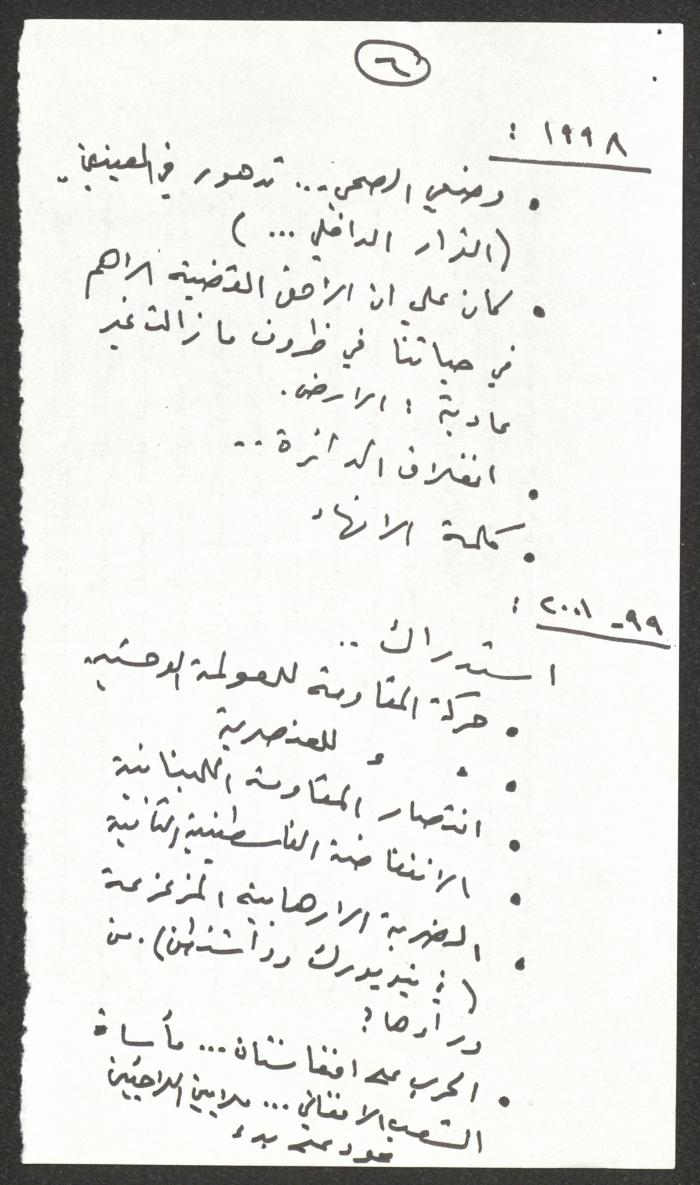 ٦
١٩٩٨ :
• وضعي الصحي ... تدهور في العينين.
(القرار الداخلي ... )
• كان علي ان الاحق القضية الاهم
في حياتنا في ظروف ما زالت غير
عادية : الارض.
• انغلاق الدائرة ..
• كلمة الانهاء
٩٩ - ٢٠٠١ :
استدراك ..
• حركة المقاومة للعولمة الوحشية
• " " للعنصرية
• انتصار المقاومة اللبنانية
• الانتفاضة الفلسطينية الثانية
• الضربة الارهابية المزعزعة
( في نيويورك وواشنطن). من
وراءها؟
• الحرب على افغانستان ... مأساة
الشعب الافغاني ... ملايين اللاجئين
عود على بدء